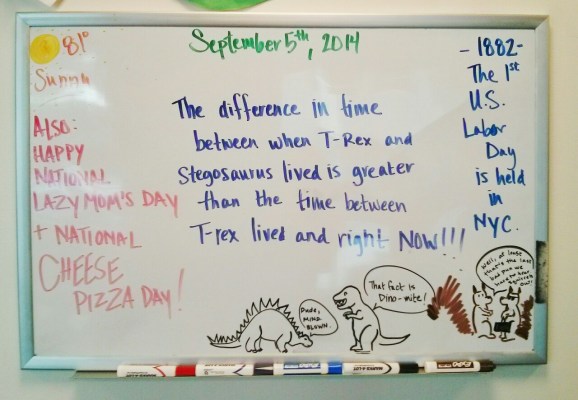 September 5th, 2014
81°
Sunny
ALSO:
HAPPY
NATIONAL
LAZY MOM'S DAY
+ NATIONAL
CHEESE
PIZZA DAY!
The difference in time
between when T-Rex and
Stegosaurus lived is greater
than the time between
T-rex lived and right NOW!!!
- 1882 -
The 1st
U.S.
Labor
Day
is held
in
NYC.
Dude,
MIND
BLOWN.
That fact is
Dino-mite!
Well, at least
that's the last
bad pun we
have to hear
out!
EXPO